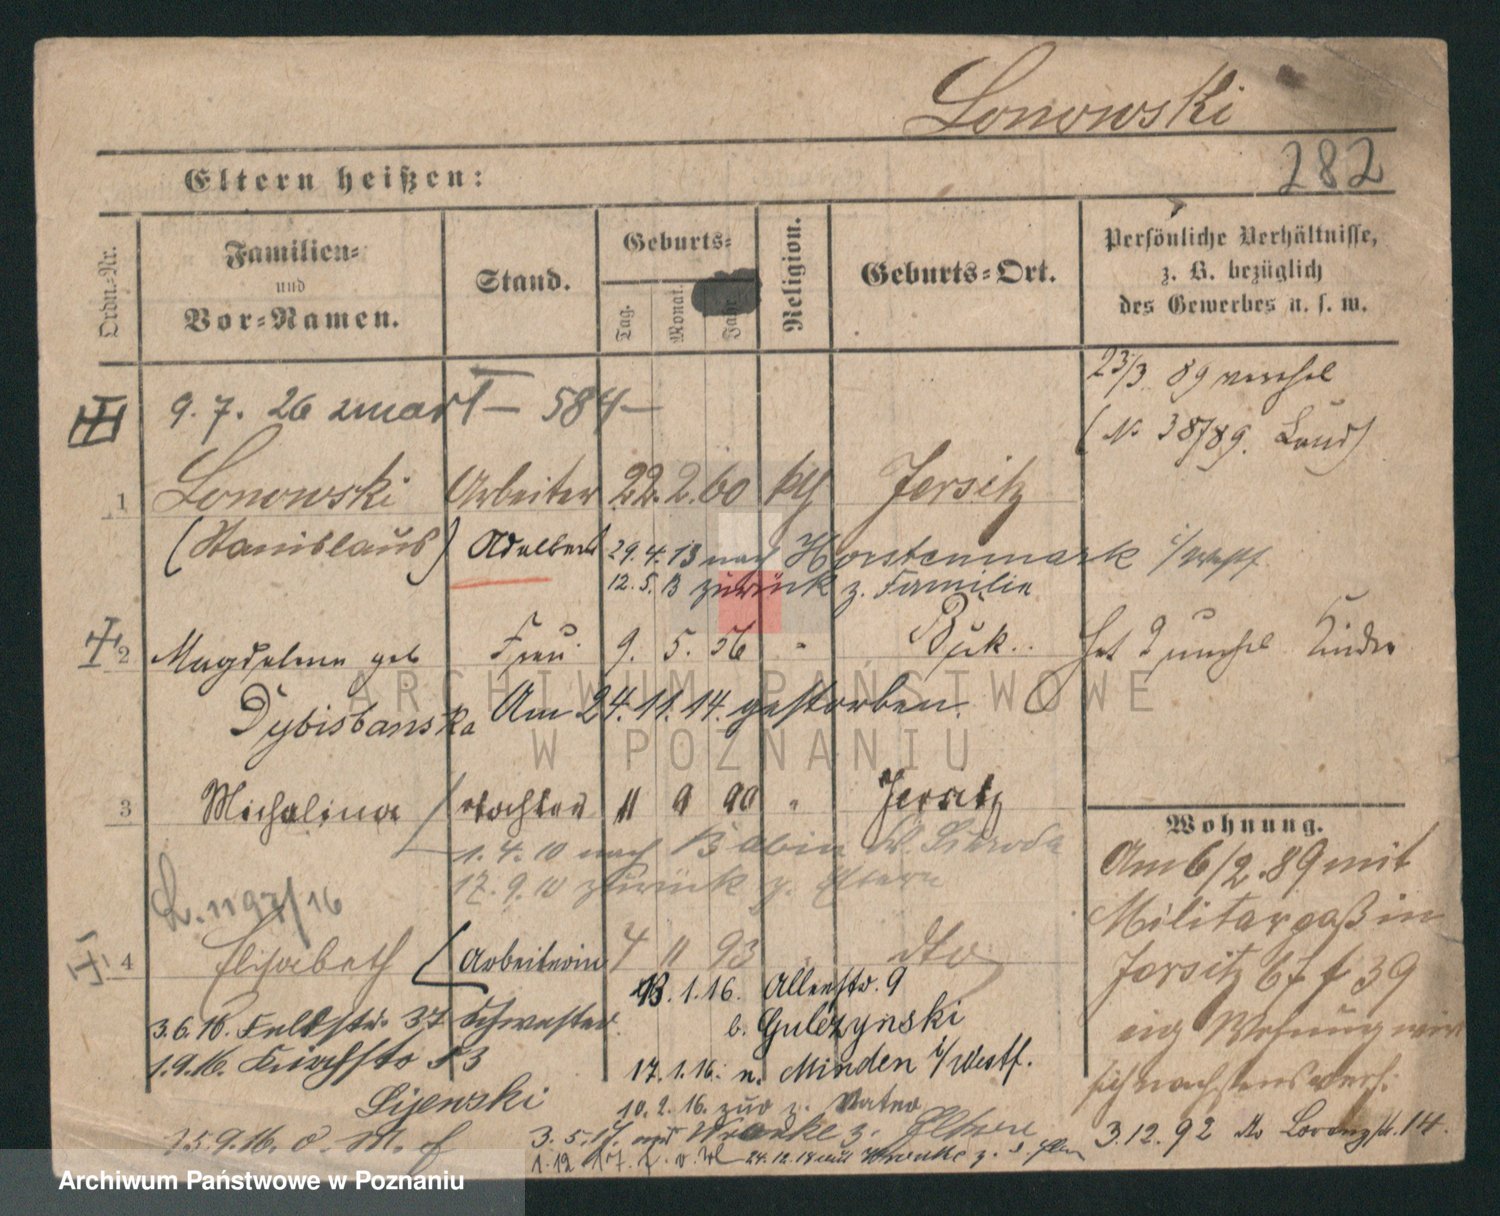 Lonowski
282
Eltern heißen:
Ordn.-Nr.
Familien-
und
Vor-Namen.
Stand.
Geburts-
Tag.
Monat.
Jahr.
Religion.
Geburts-Ort.
Persönliche Verhältnisse,
z. B. bezüglich
des Gewerbes u. s. w.
23/3. 89
9. 7. 26 zmarł — 584 —
(No 387/89. Land)
1 Lonowski Arbeiter 22. 2. 60 kth Jersitz
(Stanislaus) Adalbert 29. 4. 13 nach Horstenmark i/Westf.
12. 5. 13 zurück z. Familie
2 Magdalena geb Frau 9. 5. 56 " Buk. Hat 2 Kinder
Dybisbanska Am 24. 11. 14. gestorben.
3 Michalina Tochter 11 9 90 " Jersitz
1. 4. 10 nach Babin Kr. Schroda
17. 9. 10 zurück z. Eltern
L. 1197/16
4 Elisabeth Arbeiterin 4 11 93 dto
13. 1. 16. Allenstr. 9
b. Gulczynski
3. 6. 16. Feldstr. 37 Schwester
17. 1. 16. n. Minden i/Westf.
1. 9. 16. Kirchstr 53
Lijewski
10. 2. 16. zur z. Vater
15. 9. 16. o. M. f
3. 5. 17. nach Wronke z. Eltern
1. 12. 17. 24. 12. 18 Wronke z. d.
Wohnung.
Am 6/2. 89 mit
Militärpaß in
Jersitz 67 f 39
eig Wohnung wird
sich nachstens
3. 12. 92 do Lorenzstr. 14.
ARCHIWUM PAŃSTWOWE
W POZNANIU
Archiwum Państwowe w Poznaniu